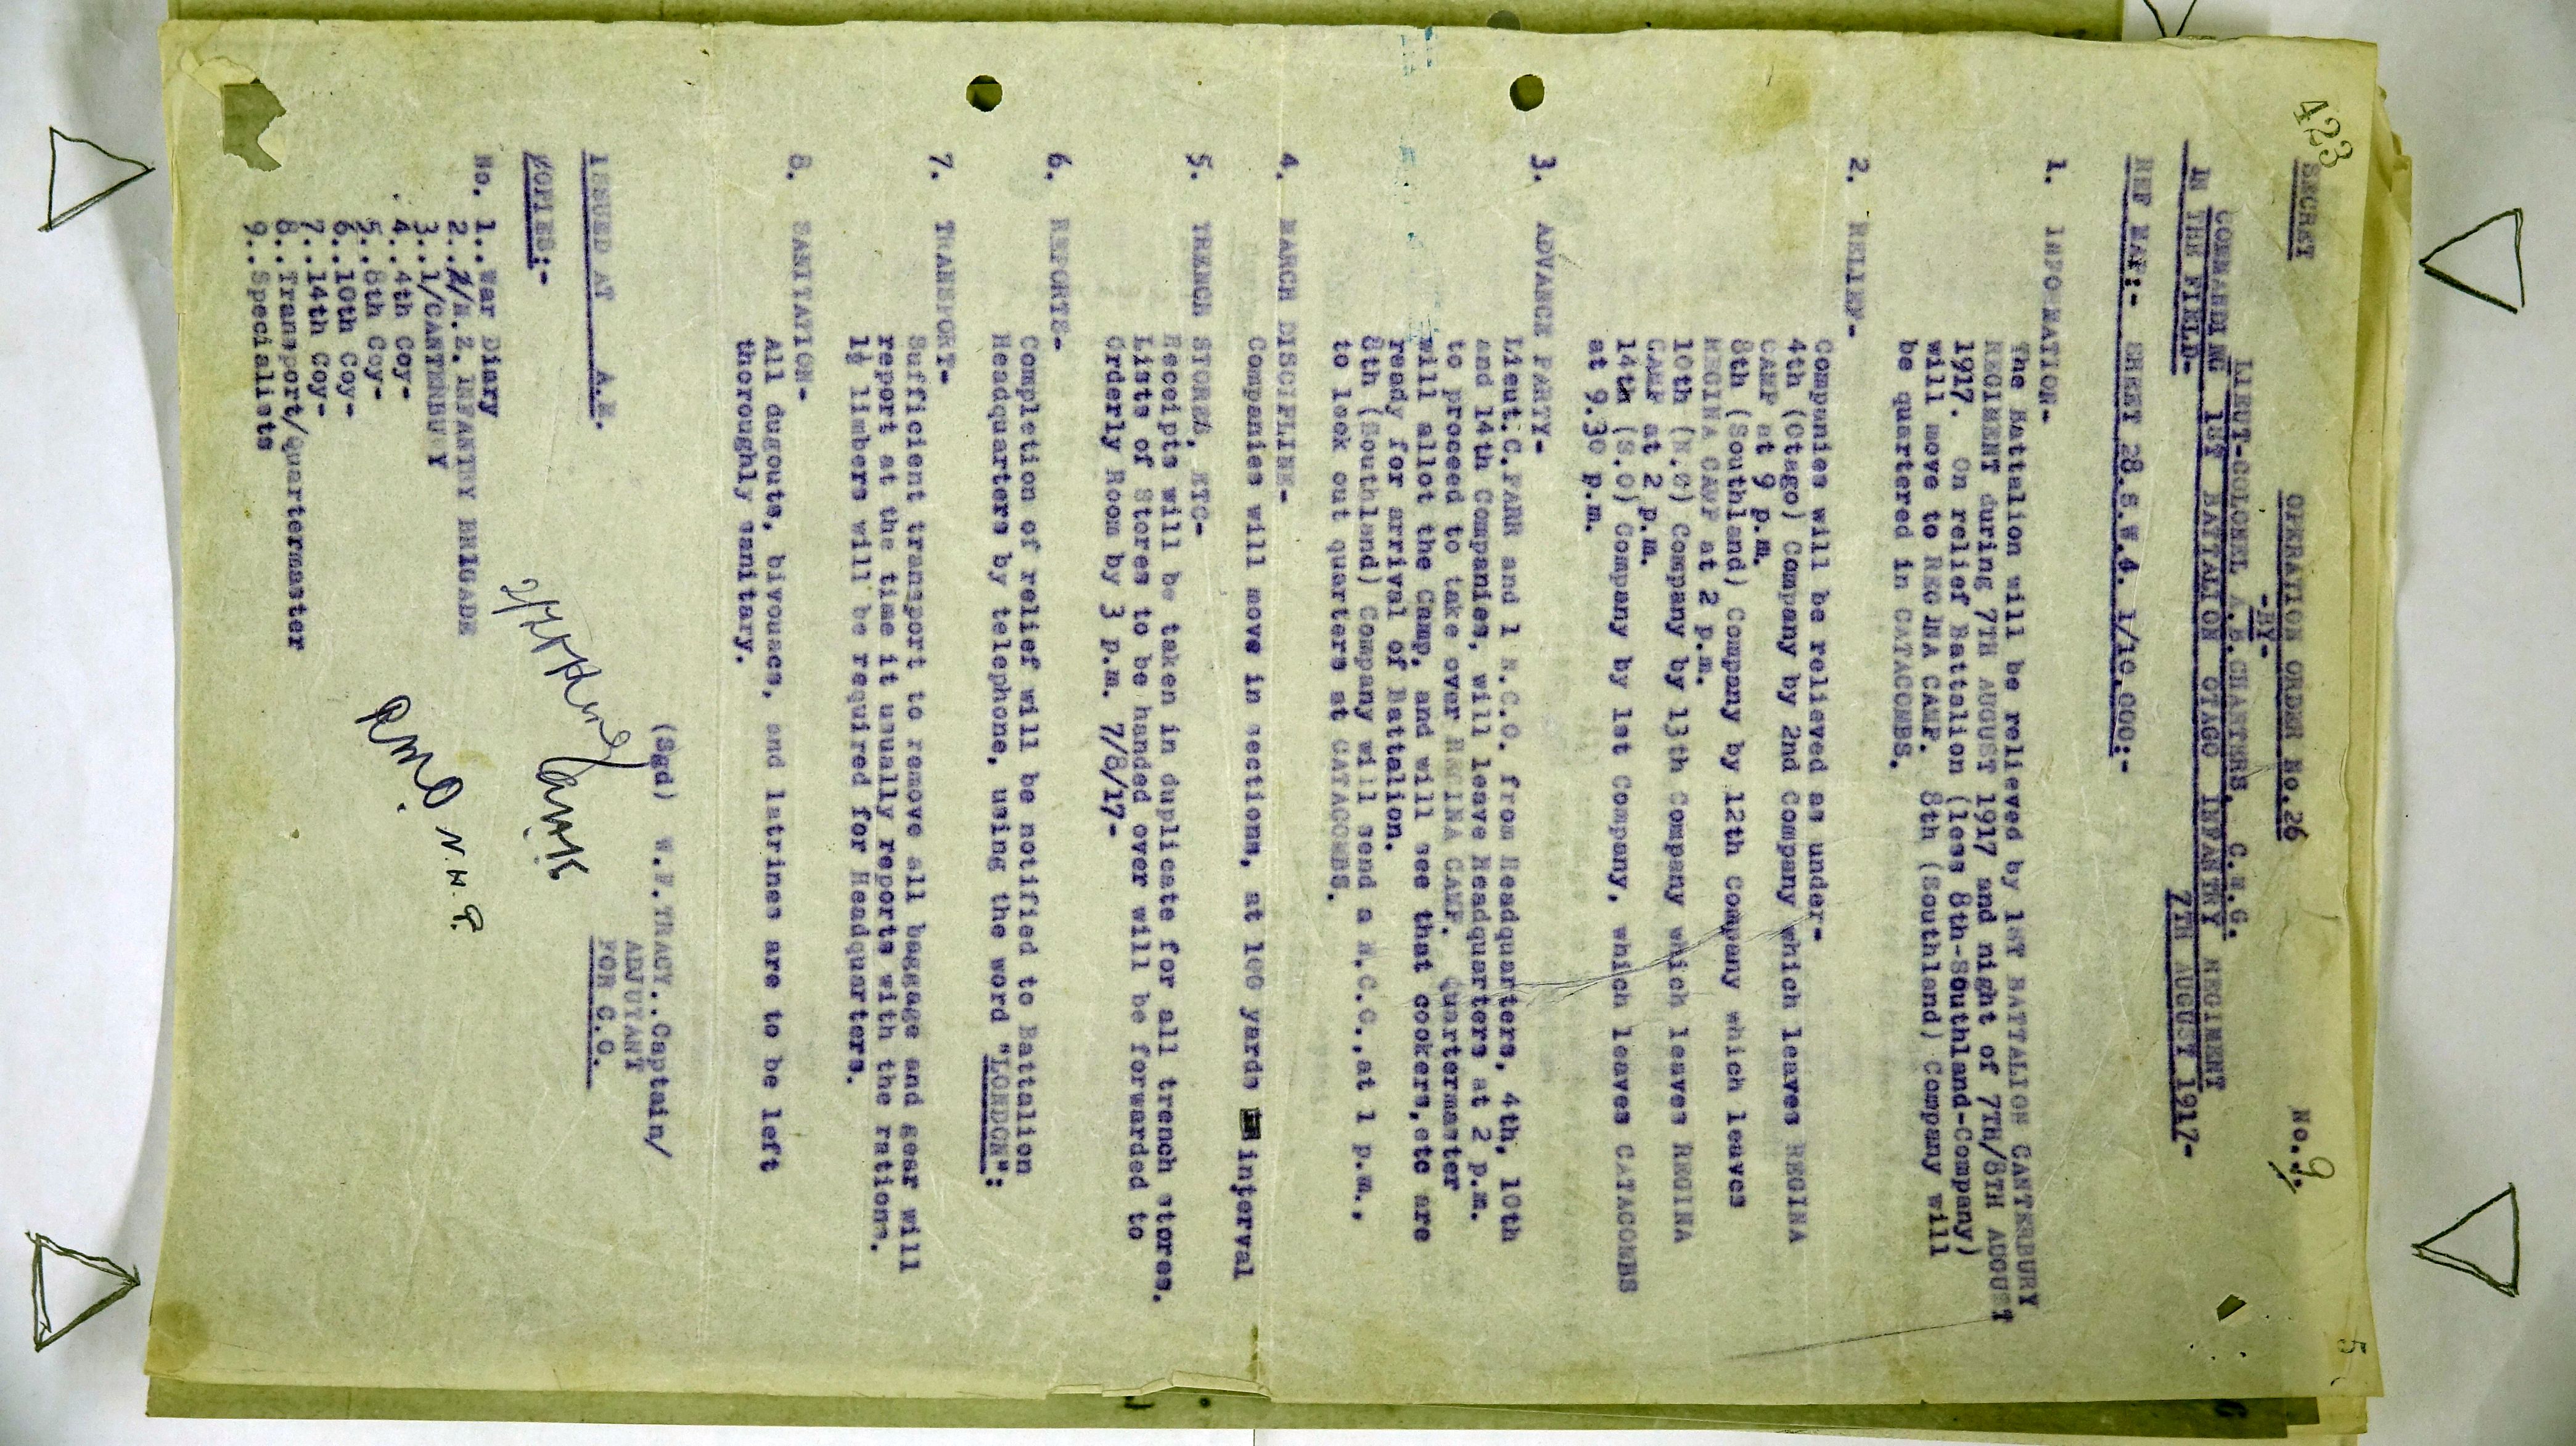 423
5
SECRET
OPERATION ORDER No.26
No. 9.
-BY-
LIEUT-COLONEL A.B.CHARTERS, C.M.G.
COMMANDING 1ST BATTALION OTAGO INFANTRY REGIMENT
IN THE FIELD-
7TH AUGUST 1917-
REF MAP:- SHEET 28.S.W.4. 1/10,000:-
1. INFORMATION-
The Battalion will be relieved by 1ST BATTALION CANTERBURY
REGIMENT during 7TH AUGUST 1917 and night of 7TH/8TH AUGUST
1917. On relief Battalion (less 8th-Southland-Company)
will move to REGINA CAMP. 8th (Southland) Company will
be quartered in CATACOMBS.
2. RELIEF-
Companies will be relieved as under-
4th (Otago) Company by 2nd Company which leaves REGINA
CAMP at 9 p.m.
8th (Southland) Company by 12th Company which leaves
REGINA CAMP at 2 p.m.
10th (N.O) Company by 13th Company which leaves REGINA
CAMP at 2 p.m.
14th (S.O) Company by 1st Company, which leaves CATACOMBS
at 9.30 p.m.
3. ADVANCE PARTY-
Lieut.C.PARR and 1 N.C.O. from Headquarters, 4th, 10th
and 14th Companies, will leave Headquarters at 2 p.m.
to proceed to take over REGINA CAMP. Quartermaster
will allot the Camp, and will see that cookers,etc are
ready for arrival of Battalion.
8th (Southland) Company will send a N.C.O.,at 1 p.m.,
to look out quarters at CATACOMBS.
4. MARCH DISCIPLINE-
Companies will move in sections, at 100 yards interval
5. TRENCH STORES, ETC-
Receipts will be taken in duplicate for all trench stores.
Lists of Stores to be handed over will be forwarded to
Orderly Room by 3 p.m. 7/8/17-
6. REPORTS-
Completion of relief will be notified to Battalion
Headquarters by telephone, using the word "LONDON":
7. TRANSPORT-
Sufficient transport to remove all baggage and gear will
report at the time it usually reports with the rations.
1½ limbers will be required for Headquarters.
8. SANITATION-
All dugouts, bivouacs, and latrines are to be left
thoroughly sanitary.
(Sgd) W.F.TRACY..Captain/
ADJUTANT
FOR C.O.
ISSUED AT A.M.
COPIES:-
No. 1..War Diary
2../N.Z. INFANTRY BRIGADE
3..1/CANTERBURY
4..4th Coy-
5..8th Coy-
6..10th Coy-
7..14th Coy-
8..Transport/Quartermaster
9..Specialists